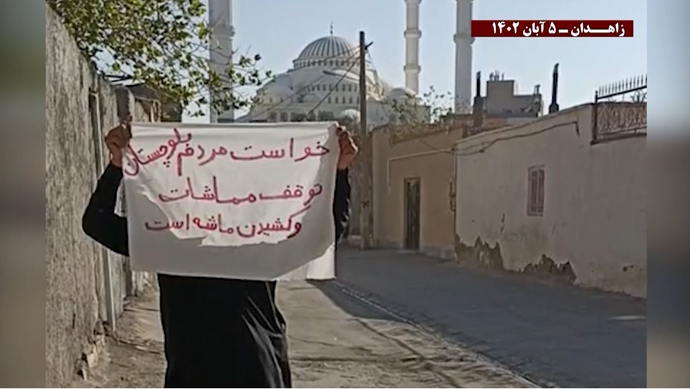 زاهـدان ـ ۵ آبان ۱۴۰۲
خواست مردم بلوچستان
توقف مماشات
و کشیدن ماشه است